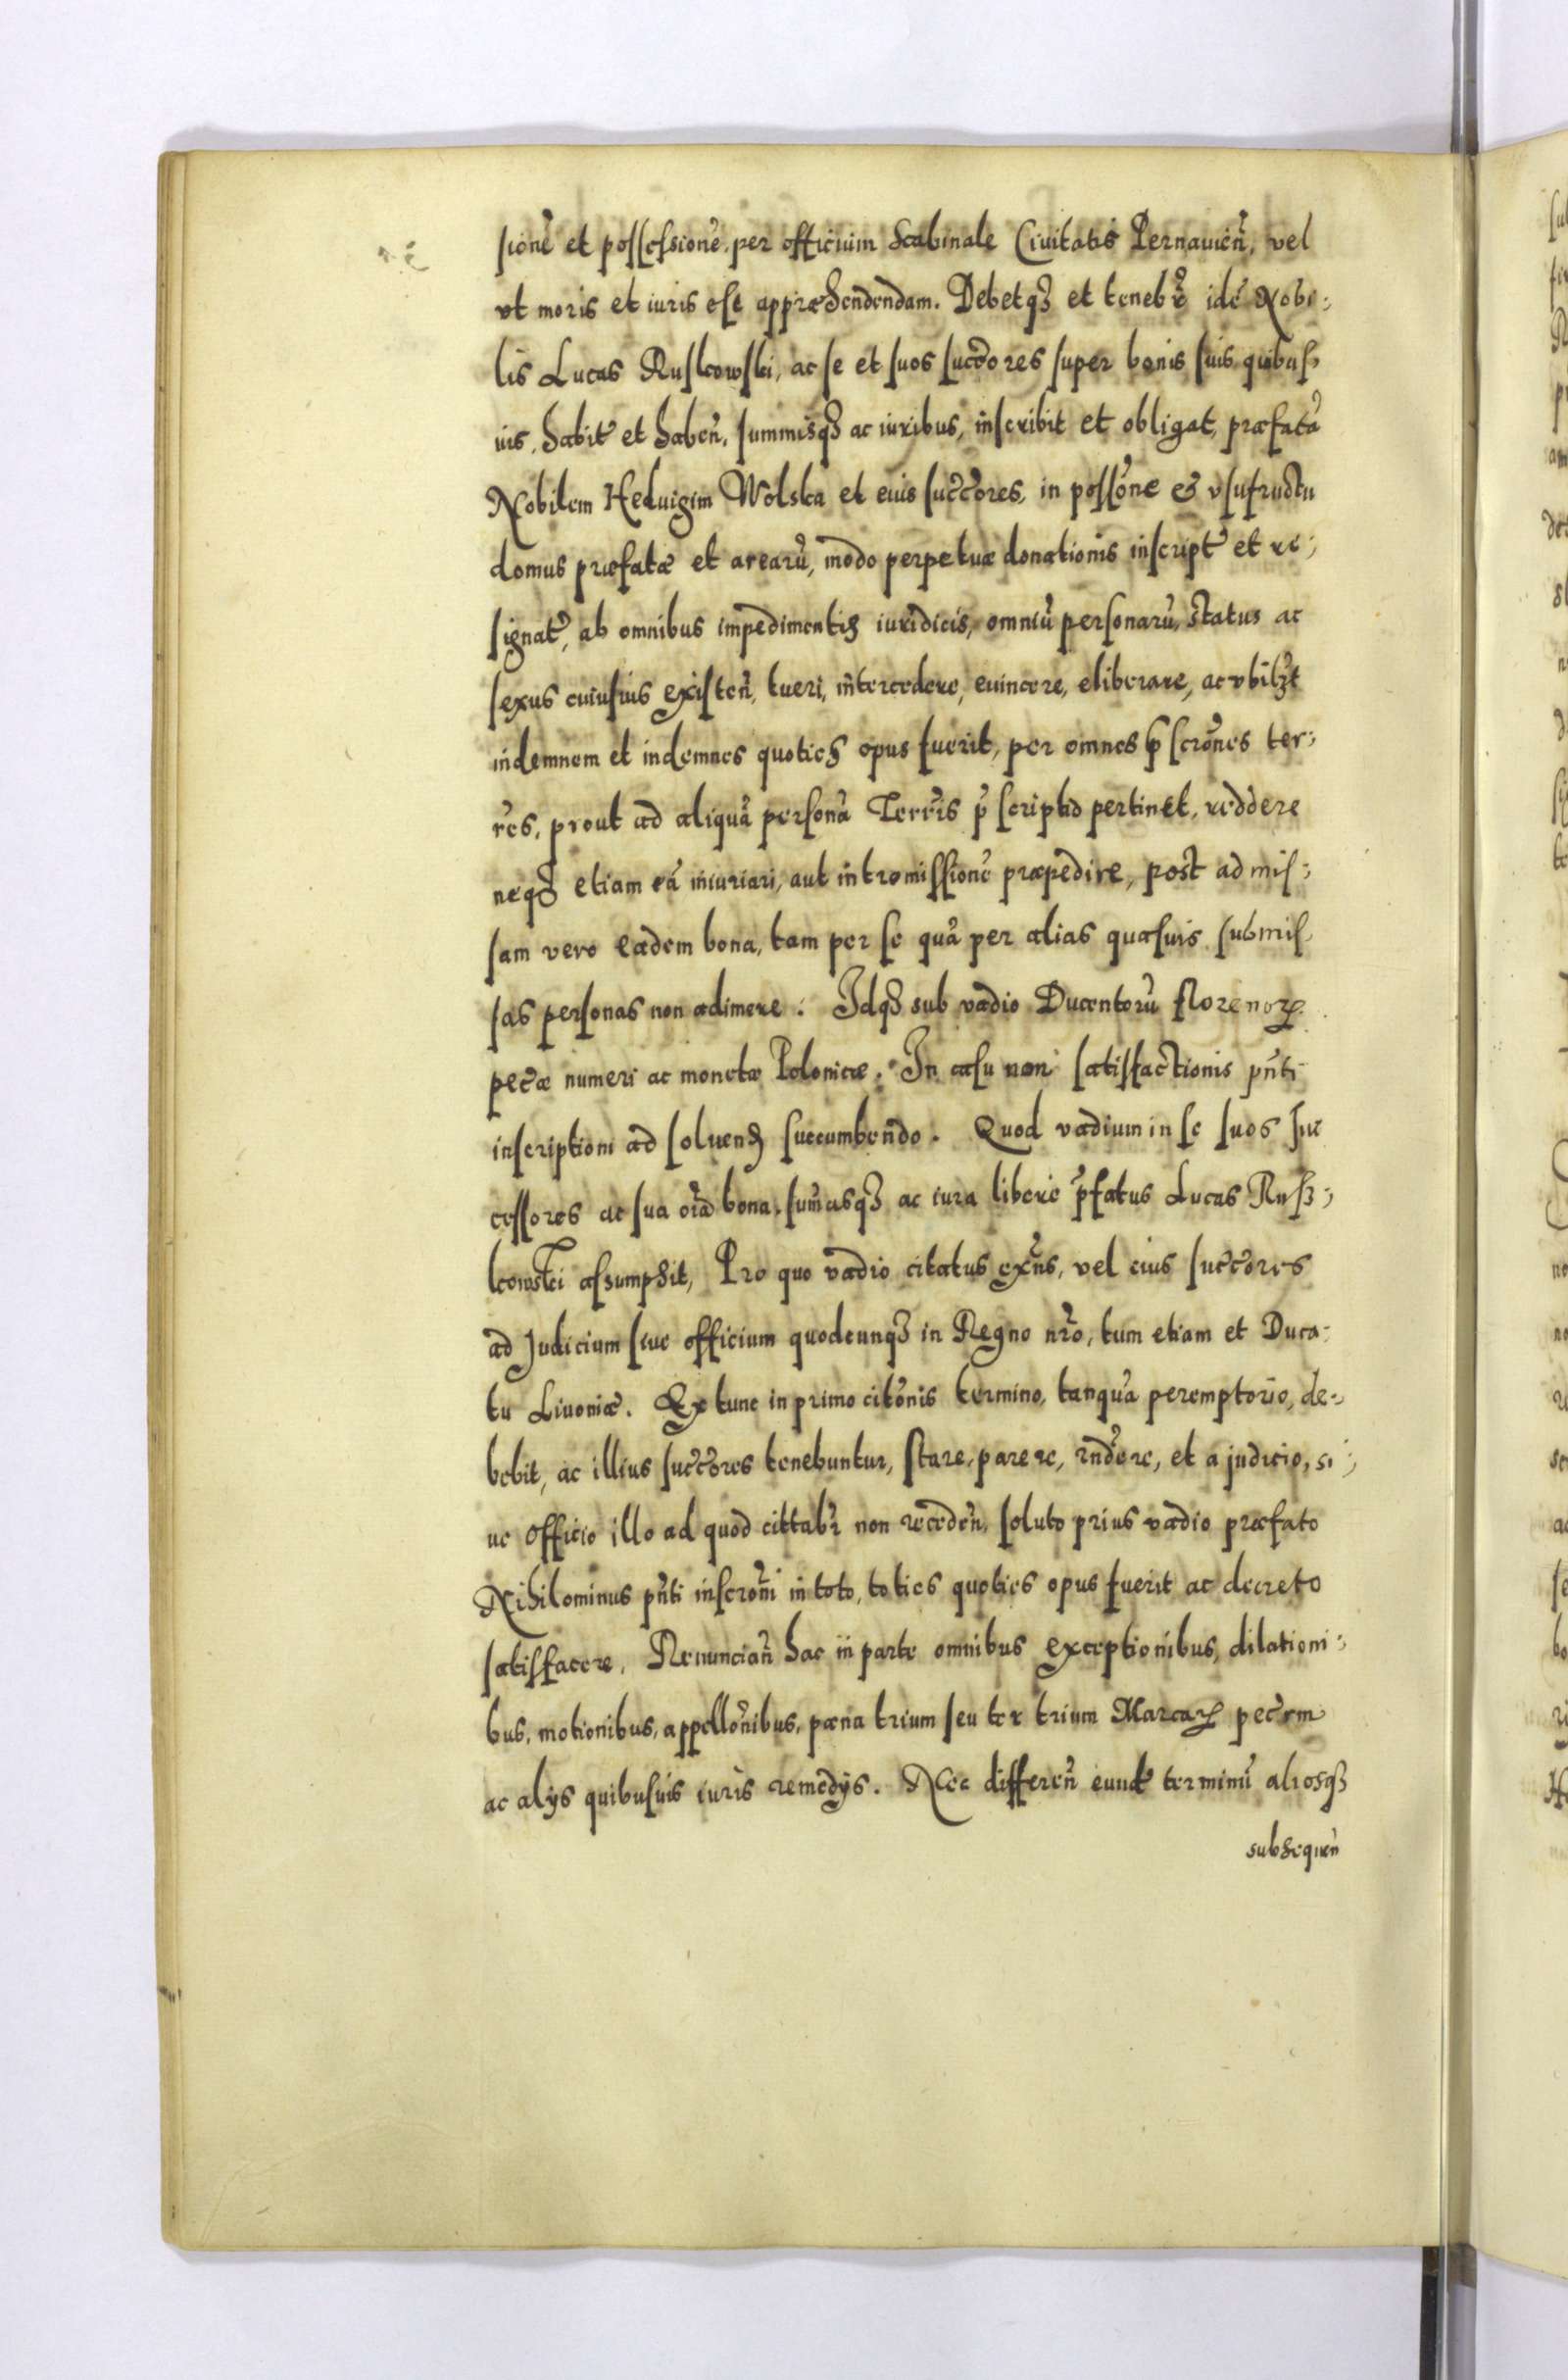 sionē et possessionē, per officium Scabinale Ciuitatis Pernauien̄, vel
vt moris et iuris est appræhendendam. Debetqȝ et tenebr̃ idē Nobi:
lis Lucas Ruskowski, ac se et suos succōres super bonis suis quibus
uis, habit̃ et haben̄, summisqȝ ac iuribus, inscribit et obligat, præfatā
Nobilem Heduigim Wolska et eius succc̃ores, in possõne et vsufructu
domus præfatæ et arearū, modo perpetuæ donationis inscript̃ et re:
signat̃, ab omnibus impedimentis iuridicis, omniū personarū, status ac
sexus cuiusuis existen̄, tueri, intercedere, euincere, eliberare, ac vbilȝt
indemnem et indemnes quoties opus fuerit, per omnes p̃scrõnes ter:
r̃es, prout ad aliquā personā Terr̃is p̃scriptio pertinet, reddere
neqȝ etiam eā iniuriari, aut intromissionē præpedire, post admis:
sam vero eadem bona, tam per se quā per alias quasuis submis
sas personas non adimere. Idqȝ sub vadio Ducentorū florenorꝝ
pec̃æ numeri ac monetæ Polonicæ. In casu non satisfactionis pn̄ti
inscriptioni ad soluenȝ succumbendo. Quod vadium in se suos suc
cessores ac sua oīa bona, sum̄asqȝ ac iura libere p̃fatus Lucas Rusz:
kowski assumpsit, Pro quo vadio citatus exn̄s, vel eius succc̃ores
ad Judicium siue officium quodcunqȝ in Regno nr̃o, tum etiam et Duca:
tu Liuoniæ. Ex tunc in primo citõnis termino, tanquā peremptorio, de:
bebit, ac illius succc̃ores tenebuntur, stare, parere, rnd̃ere, et a judicio, si:
ue officio illo ad quod cittabr̃ non receden̄, soluto prius vadio præfato
Nihilominus pn̄ti inscrõni in toto, toties quoties opus fuerit ac decreto
satisfacere. Renuncian̄ hac in parte omnibus exceptionibus, dilationi:
bus, motionibus, appellõnibus, pæna trium seu ter trium Marcarꝝ pec̃rm
ac alijs quibusuis iuris remedijs. Nec differen̄ eund̃ terminū aliosqȝ
subsequen̄